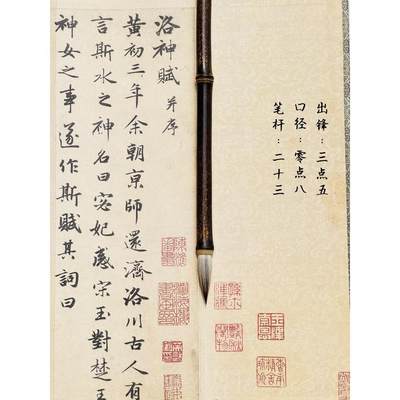 洛神賦 并序
黄初三年余朝京師還濟洛川古人有
言斯水之神名曰宓妃感宋玉對楚王
神女之事遂作斯賦其詞曰
出锋：三点五
口径：零点八
笔杆：二十三